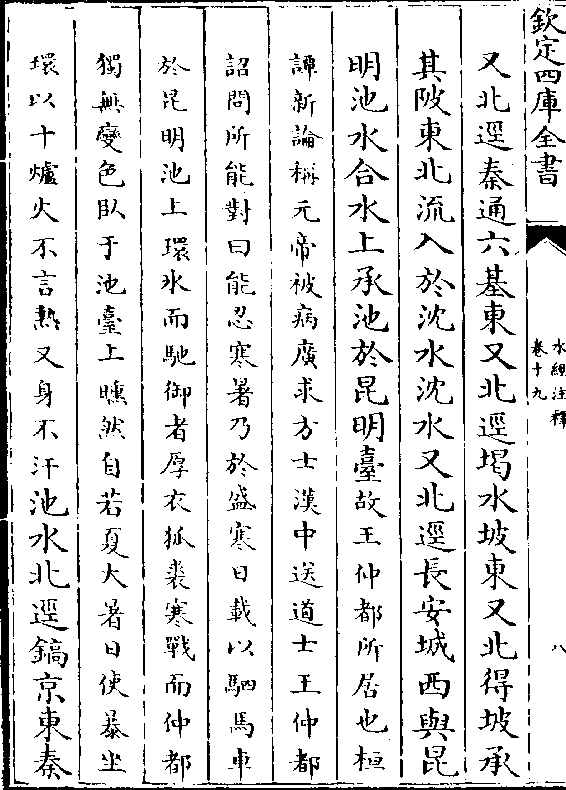 欽定四庫全書
水經注釋
卷十九
八
又北逕秦通六基東又北逕堨水坡東又北得坡承
其陂東北流入於沈水沈水又北逕長安城西與昆
明池水合水上承池於昆明臺故王仲都所居也桓
譚新論稱元帝被病廣求方士漢中送道士王仲都
詔問所能對曰能忍寒暑乃於盛寒日載以駟馬車
於昆明池上環氷而馳御者厚衣狐裘寒戰而仲都
獨無變色臥于池臺上曛然自若夏大暑日使暴坐
環以十爐火不言熱又身不汗池水北逕鎬京東秦